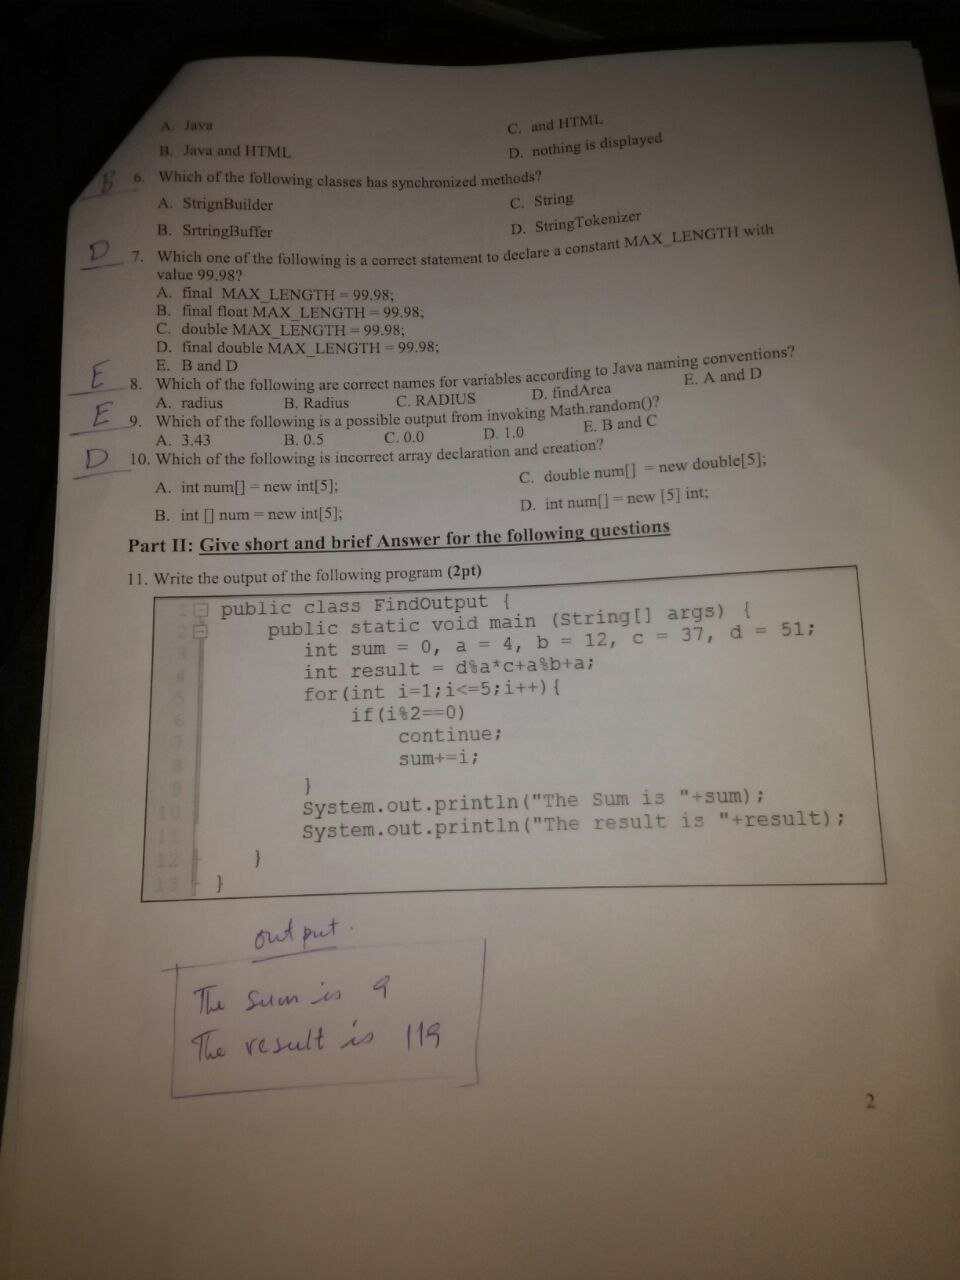 A. Java
C. and HTML
B. Java and HTML
D. nothing is displayed
B 6. Which of the following classes has synchronized methods?
A. StrignBuilder
C. String
B. SrtringBuffer
D. StringTokenizer
D 7. Which one of the following is a correct statement to declare a constant MAX_LENGTH with
value 99.98?
A. final MAX_LENGTH = 99.98;
B. final float MAX_LENGTH = 99.98;
C. double MAX_LENGTH = 99.98;
D. final double MAX_LENGTH = 99.98;
E. B and D
E 8. Which of the following are correct names for variables according to Java naming conventions?
A. radius B. Radius C. RADIUS D. findArea E. A and D
E 9. Which of the following is a possible output from invoking Math.random()?
A. 3.43 B. 0.5 C. 0.0 D. 1.0 E. B and C
D 10. Which of the following is incorrect array declaration and creation?
A. int num[] = new int[5];
C. double num[] = new double[5];
B. int [] num = new int[5];
D. int num[] = new [5] int;
Part II: Give short and brief Answer for the following questions
11. Write the output of the following program (2pt)
public class FindOutput {
public static void main (String[] args) {
int sum = 0, a = 4, b = 12, c = 37, d = 51;
int result = d%a*c+a%b+a;
for(int i=1;i<=5;i++){
if(i%2==0)
continue;
sum+=i;
}
System.out.println("The Sum is "+sum);
System.out.println("The result is "+result);
}
}
output.
The sum is 9
The result is 119
2